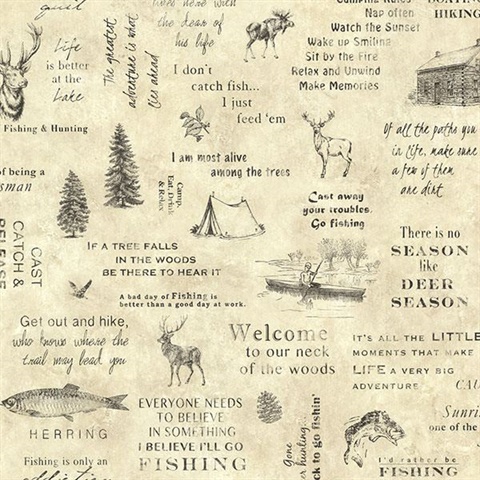 Life
is better
at the
Lake
Fishing & Hunting
The greatest
adventure is what
lies ahead
lives here with
the dear of
his life
I don't
catch fish...
I just
feed 'em
Nap often
Watch the Sunset
Wake up Smiling
Sit by the Fire
Relax and Unwind
Make Memories
BOATING
HIKING
Of all the paths you
in life, make sure
a few of them
are dirt
I am most alive
among the trees
Camp,
Eat, Drink
& Relax
Cast away
your troubles,
Go fishing
of being a
CAST
CATCH &
RELEASE
IF A TREE FALLS
IN THE WOODS
BE THERE TO HEAR IT
A bad day of Fishing is
better than a good day at work.
There is no
SEASON
like
DEER
SEASON
Get out and hike,
who knows where the
trail may lead you
Welcome
to our neck
of the woods
IT'S ALL THE LITTLE
MOMENTS THAT MAKE
LIFE A VERY BIG
ADVENTURE
HERRING
EVERYONE NEEDS
TO BELIEVE
IN SOMETHING
I BELIEVE I'LL GO
FISHING
Gone
hunting...
to go fishin'
Sunri
one of the
I'd rather be
FISHING
Fishing is only an